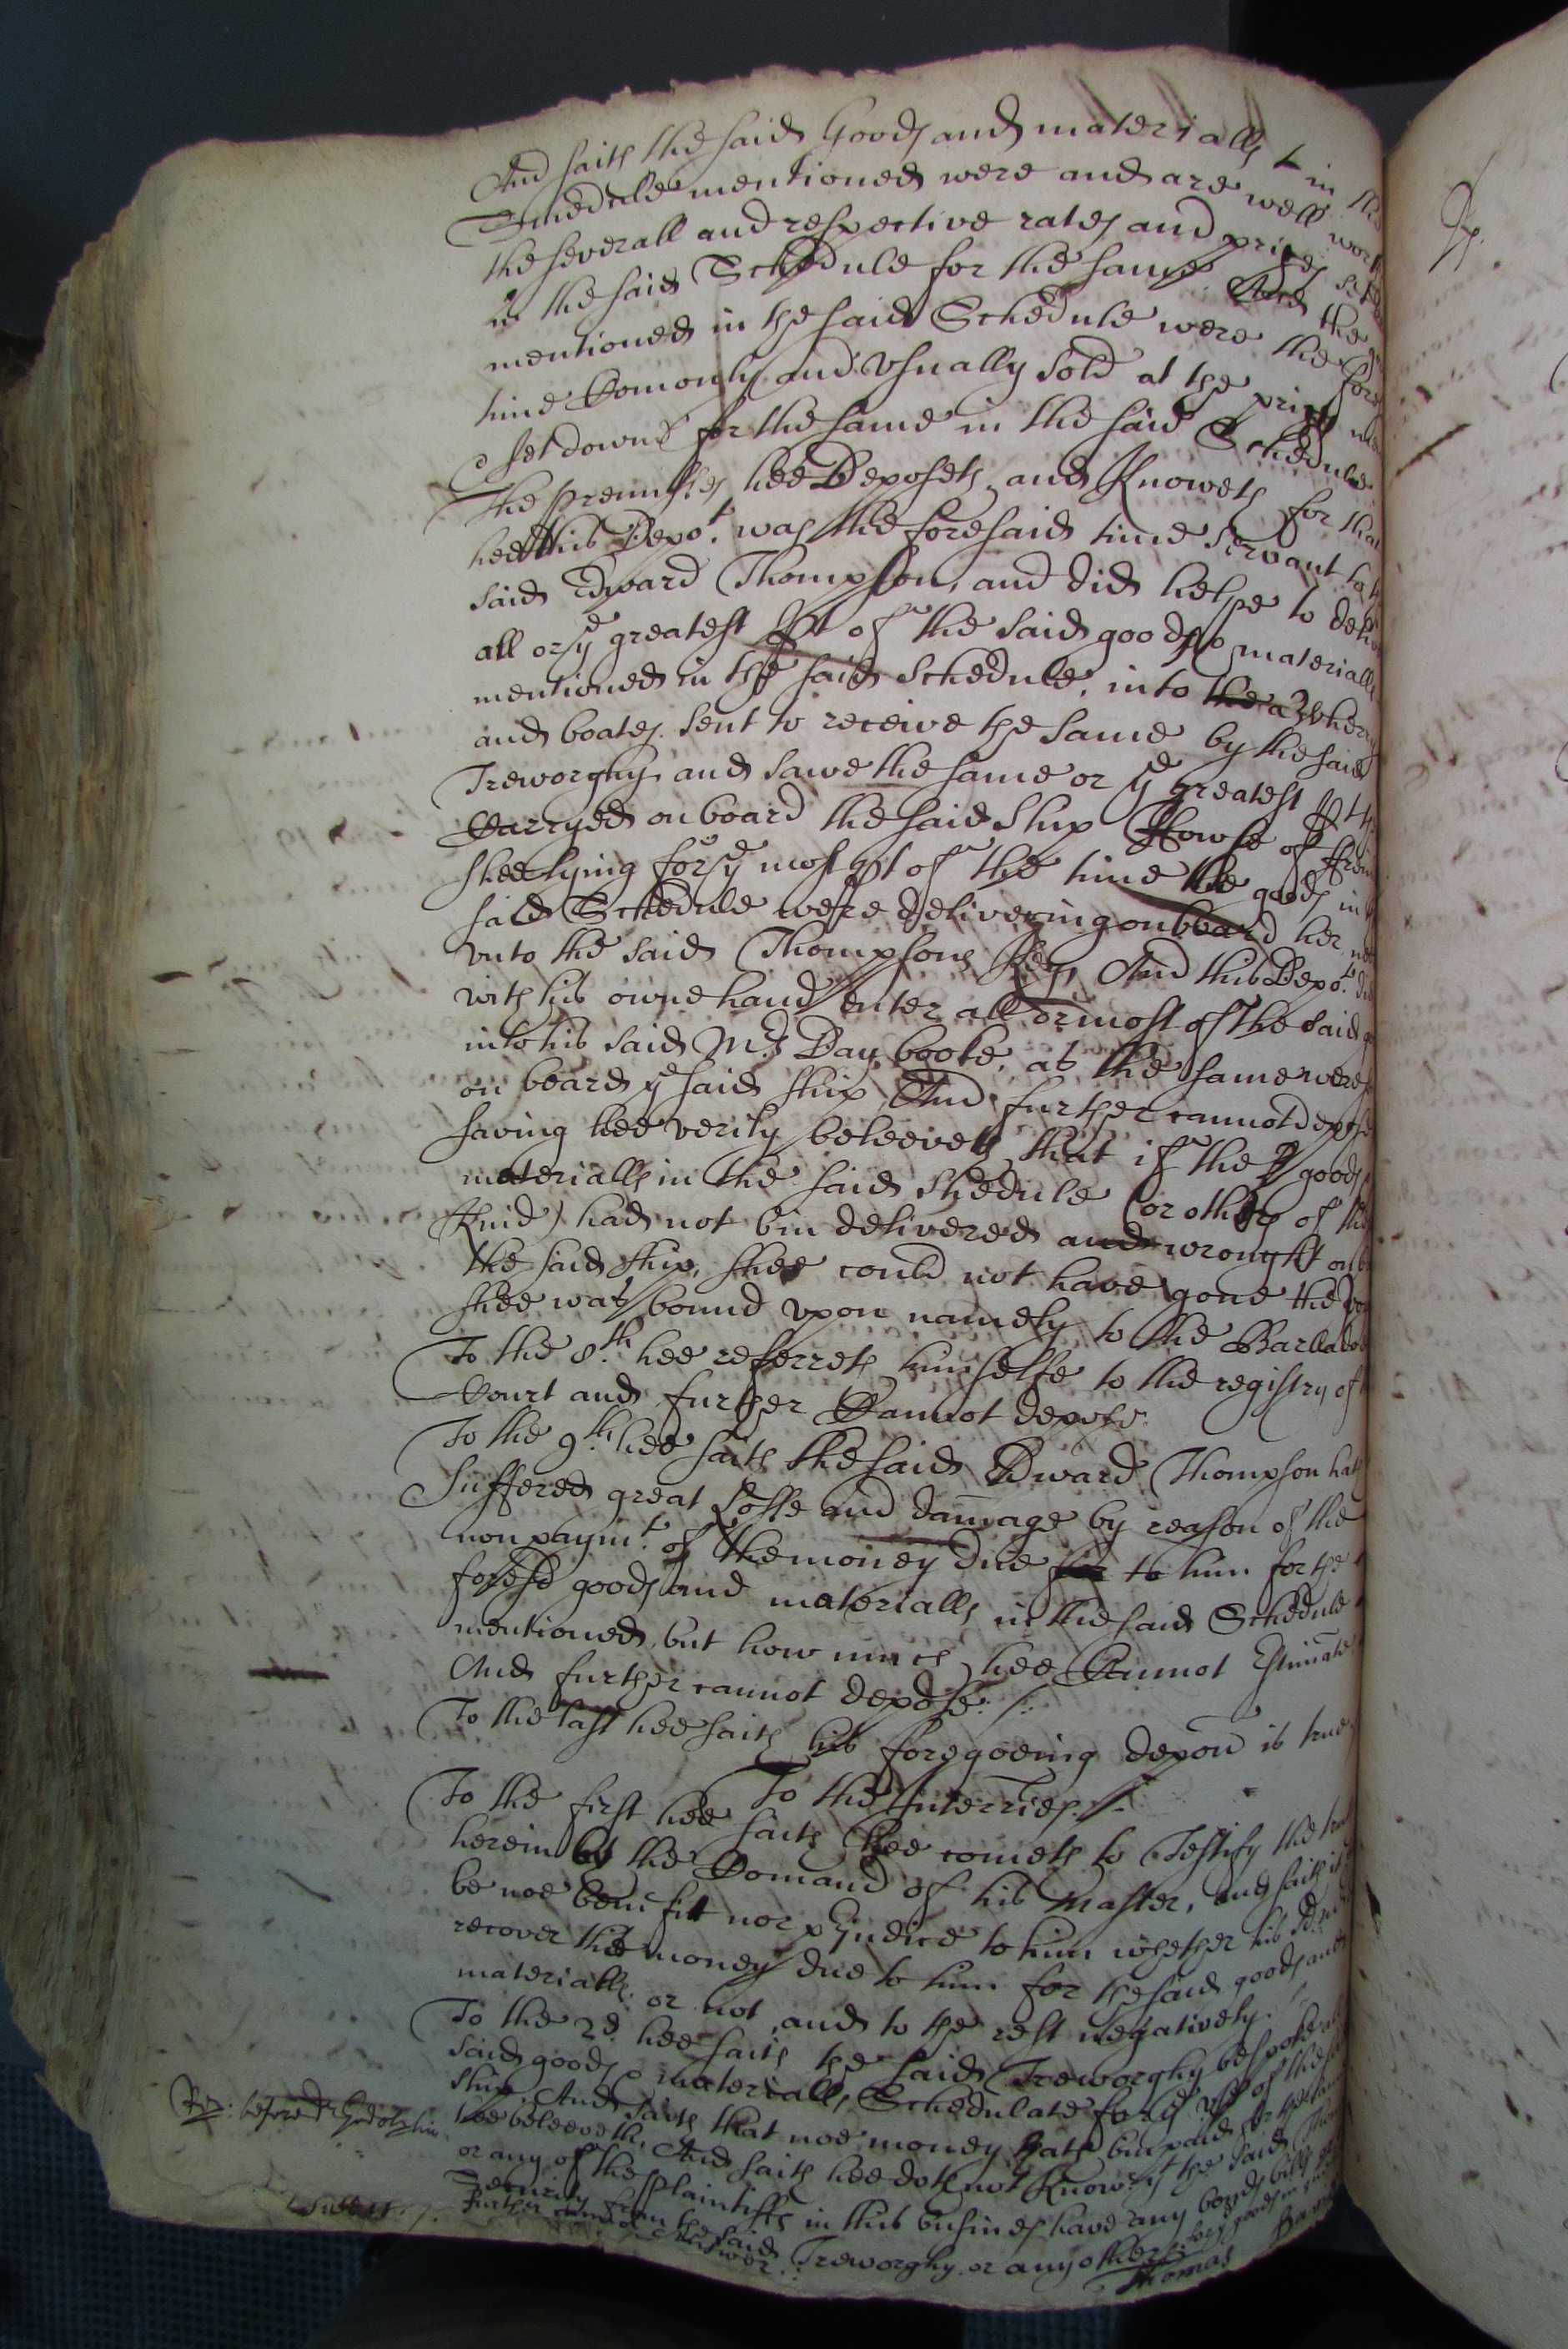 And saith the said Goods and materialls in the
Schedule mentioned were and are well worth
the severall and respective rates and prices sett
in the said Schedule for the same And the
mentioned in the said Schedule were the fore
time Comonly and usually sold at the prices
set downe for the same in the said Schedule
The premisses hee Deposeth and Knoweth for that
hee this Depot. was the foresaid time servant to th
said Edward Thompson, and did helpe to deliver
all or ye greatest pt of the said goods & materialls
mentioned in the said schedule, into the a Wherry
and boates sent to receive the same by the said
Treworghy and sawe the same or ye greatest pt
Carryed on board the said Ship Howse of
shee lying for ye most pt of the time the goods in
said Schedule were delivering on board her
unto the said Thompsons Key, And this Depot. did
with his owne hand enter all or most of the said
into his said Mrs Day booke, as the same were
on board ye said ship, And further cannot depose
saving hee verily beleeveth that if the goods
materialls in the said Schedule (or others of the
Kind) had not bin delivered and wrought on
the said ship, shee could not have gone the
shee was bound upon namely to the Barbados
To the 8th. hee referreth himselfe to the registry of
Court and further Cannot depose.
To the 9th. hee saith the said Edward Thompson hath
suffered great Losse and damage by reason of the
non paymt. of the money due for to him for the
foresd goods and materialls in the said Schedule
mentioned, but how much hee Cannot Estimate
And further cannot depose.
To the last hee saith his foregoeing depon is true
To the Interries.
To the first hee saith hee cometh to Testify the
herein by the Comand of his Master, and saith it
be noe benefit nor pjudice to him whether his sd
recover the money due to him for the said goods and
materialls or not, and to the rest negatively.
To the 2d. hee saith the said Treworghy bespoke
said goods & materialls Schedulate for ye use of the
ship. And saith that noe money hath bin paid for the same
hee beleeveth, And saith hee doth not Know yt the said
or any of the plaintiffs in this busines have any bonds bills
Security from the said Treworghy or any other for ye goods in
further cannot Answer.
Thomas
Rep: before dr Godolphin